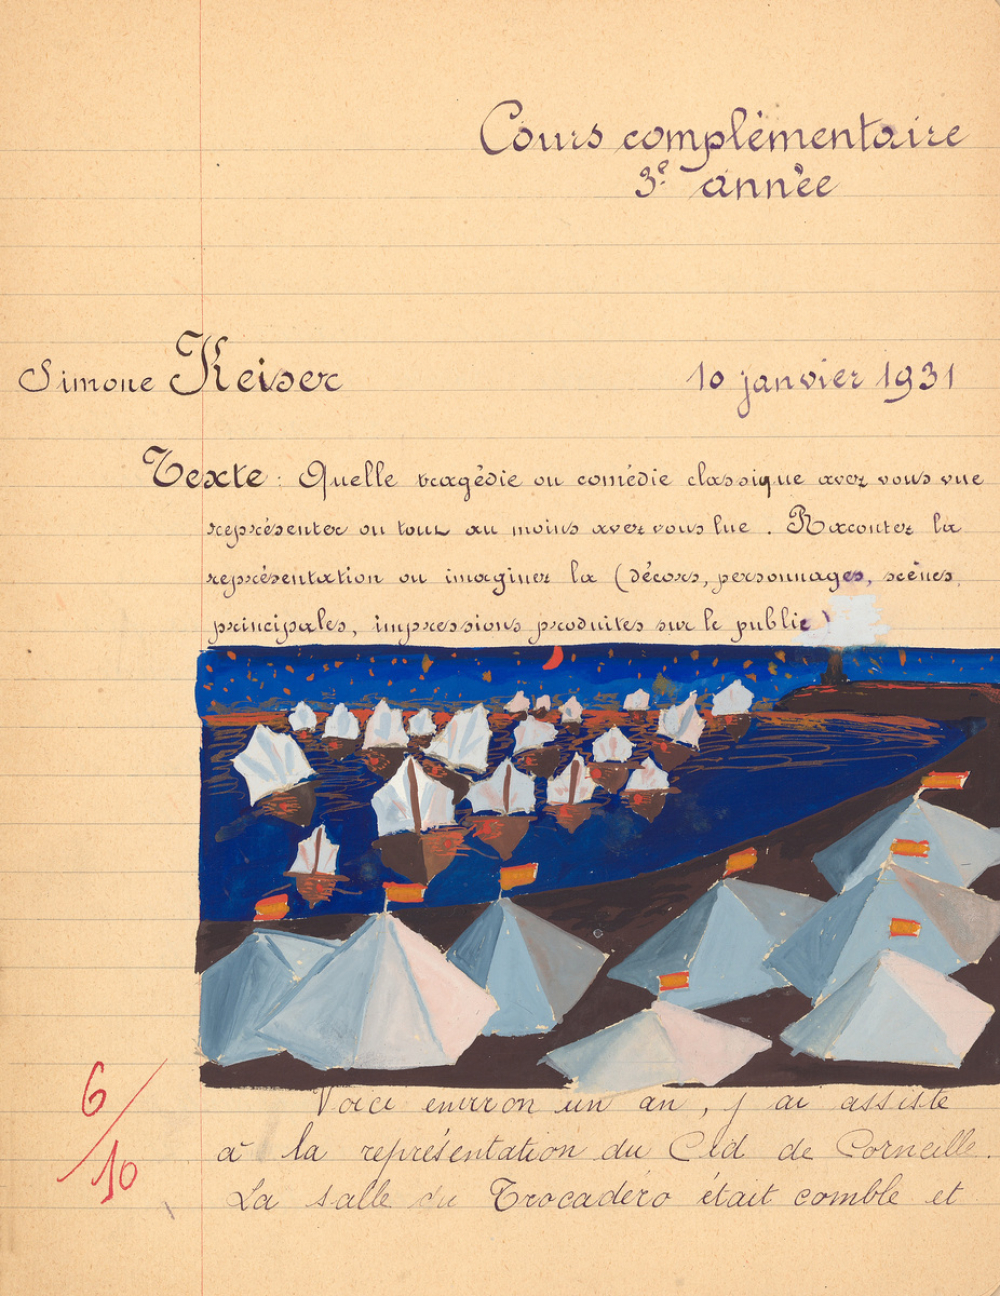 Cours complémentaire
3e année
Simone Keiser
10 janvier 1931
Texte : Quelle tragédie ou comédie classique avez vous vue
représenter ou tout au moins avez vous lue . Racontez la
représentation ou imaginez la (décors, personnages, scènes,
principales, impressions produites sur le public)
Voici environ un an , j ai assisté
à la représentation du Cid de Corneille.
La salle du Trocadéro était comble et
6/10